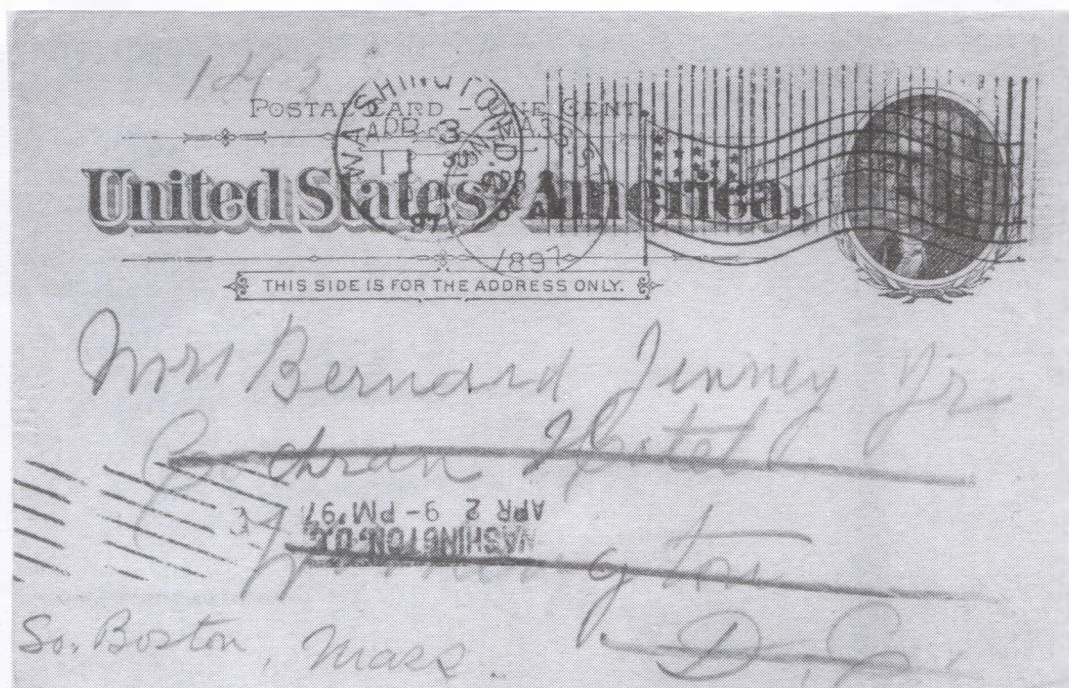 POSTAL CARD - ONE CENT.
WASHINGTON, D.C.
APR 3
97
1897
United States of America.
THIS SIDE IS FOR THE ADDRESS ONLY.
Mrs Bernard Jenney Jr
Cochran Hotel
WASHINGTON, D.C.
APR 2 9-PM '97
Washington
D.C.
So. Boston, Mass.